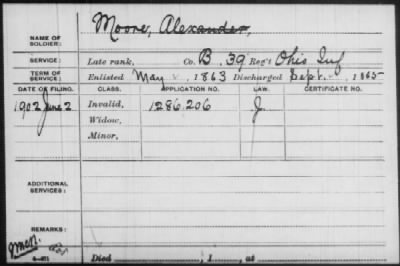 NAME OF SOLDIER: Moore, Alexander,
SERVICE: Late rank, Co. B, 39 Reg't Ohio Inf
TERM OF SERVICE: Enlisted May , 1863 Discharged Sept. , 1865
DATE OF FILING. CLASS. APPLICATION NO. LAW. CERTIFICATE NO.
1902 June 2 Invalid, 1286.206 J.
Widow,
Minor,
ADDITIONAL SERVICES:
REMARKS:
Died , 1 , at